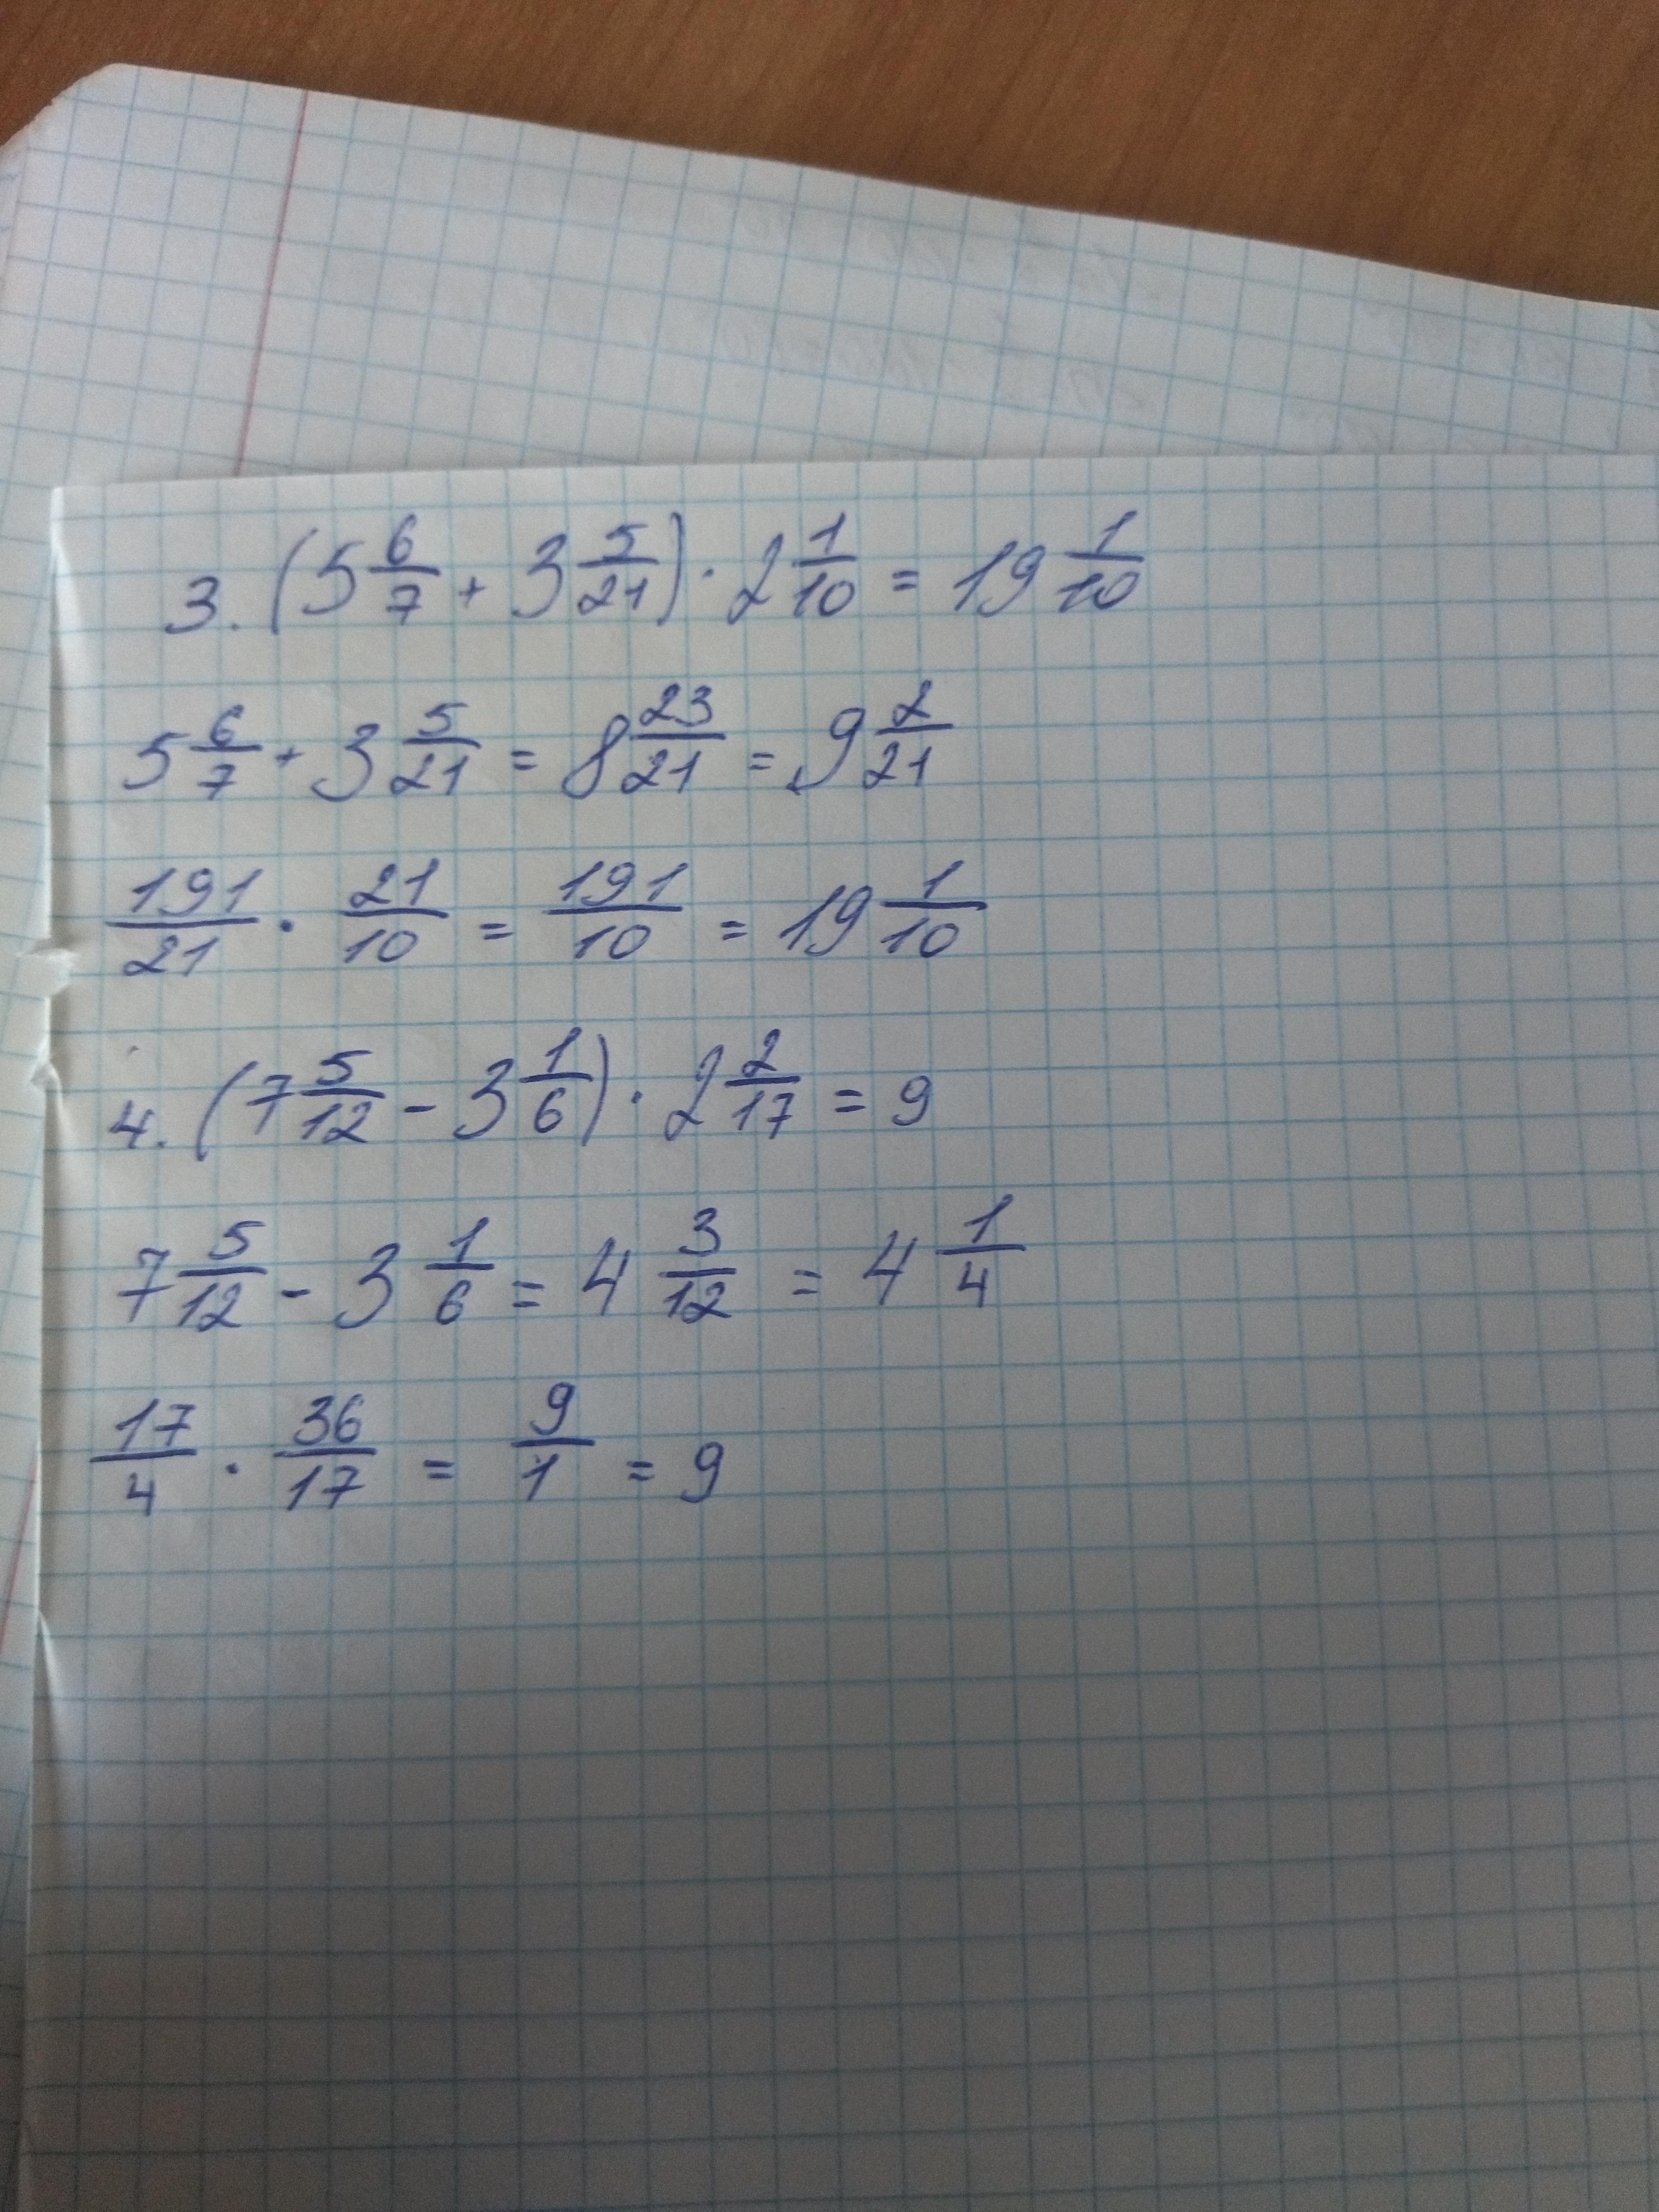 3. (5 6/7 + 3 5/21) · 2 1/10 = 19 1/10
5 6/7 + 3 5/21 = 8 23/21 = 9 2/21
191/21 · 21/10 = 191/10 = 19 1/10
4. (7 5/12 - 3 1/6) · 2 2/17 = 9
7 5/12 - 3 1/6 = 4 3/12 = 4 1/4
17/4 · 36/17 = 9/1 = 9